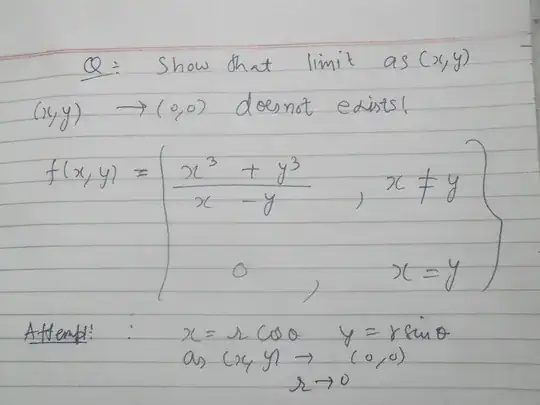 Q: Show that limit as (x,y)
(x,y) → (0,0) doesnot exists!
f(x,y) = { x³ + y³ / x - y , x ≠ y
0 , x = y }
Attempt: : x = r cosθ y = r sinθ
as (x,y) → (0,0)
r → 0